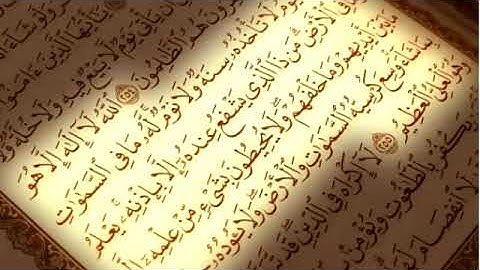 يَٰٓأَيُّهَا ٱلَّذِينَ ءَامَنُوٓا۟
يَأْتِىَ يَوْمٌ لَّا بَيْعٌ فِيهِ وَلَا خُلَّةٌ وَلَا
هُمُ ٱلظَّٰلِمُونَ ٢٥٤ ٱللَّهُ لَآ إِلَٰهَ إِلَّا هُوَ
لَا تَأْخُذُهُۥ سِنَةٌ وَلَا نَوْمٌ لَّهُۥ مَا فِى ٱلسَّمَٰوَٰتِ
فِى ٱلْأَرْضِ مَن ذَا ٱلَّذِى يَشْفَعُ عِندَهُۥٓ إِلَّا بِإِذْنِهِۦ يَعْلَمُ
بَيْنَ أَيْدِيهِمْ وَمَا خَلْفَهُمْ وَلَا يُحِيطُونَ بِشَىْءٍ مِّنْ عِلْمِهِۦٓ إِلَّا
بِمَا شَآءَ وَسِعَ كُرْسِيُّهُ ٱلسَّمَٰوَٰتِ وَٱلْأَرْضَ وَلَا يَـُٔودُهُۥ
وَهُوَ ٱلْعَلِىُّ ٱلْعَظِيمُ ٢٥٥ لَآ إِكْرَاهَ فِى ٱلدِّينِ قَد
يَكْفُرْ بِٱلطَّٰغُوتِ وَيُؤْمِنۢ
لَا ٱنفِصَامَ لَهَا